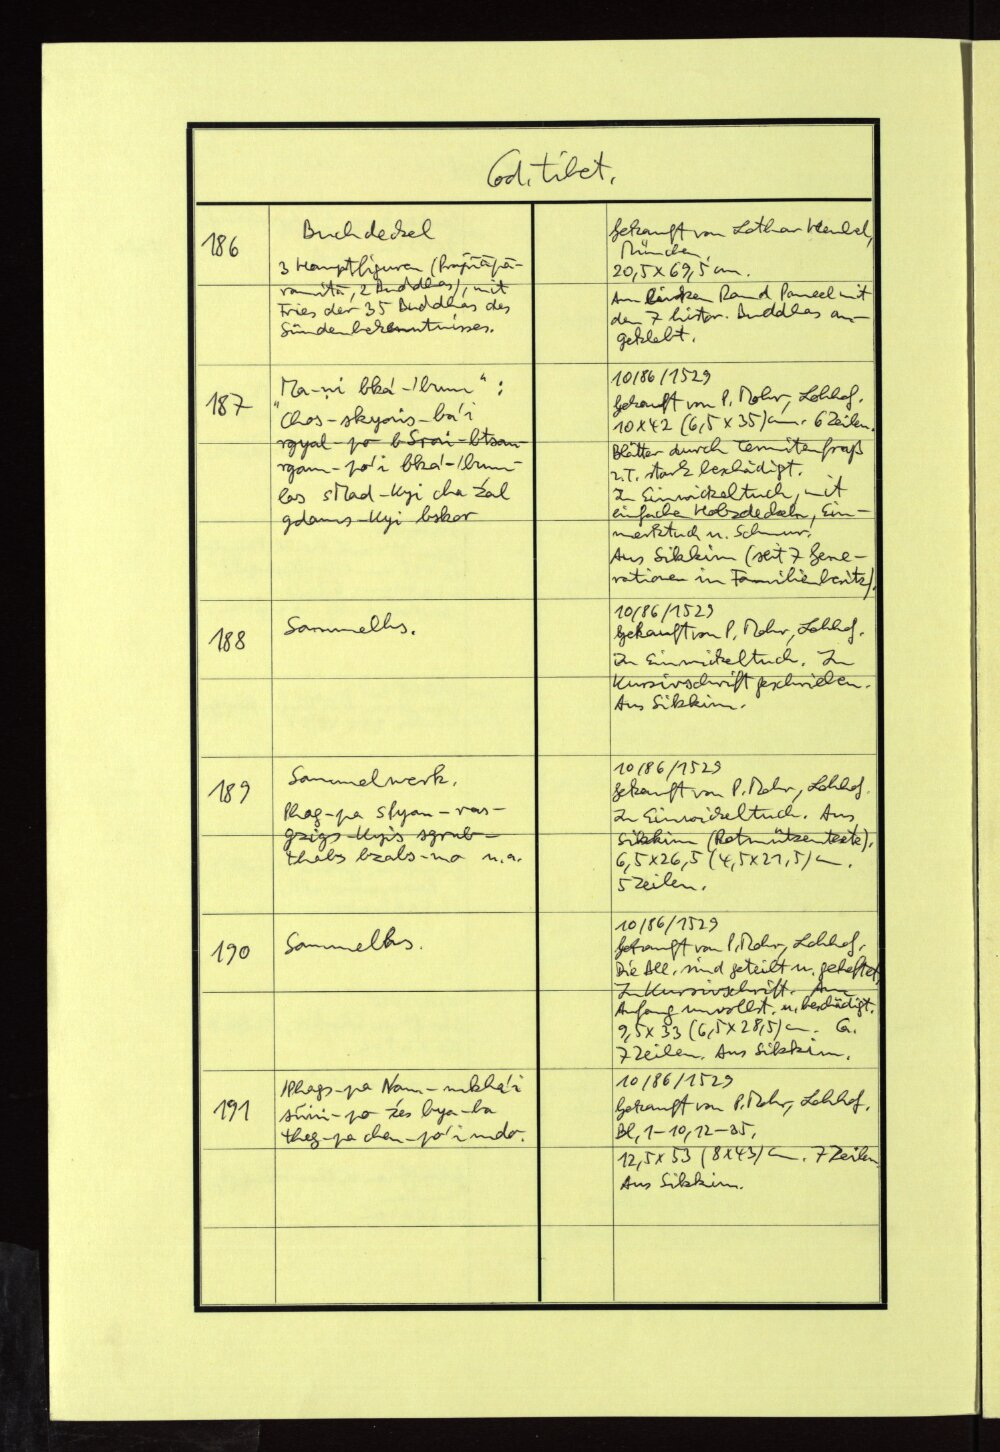 Cod. tibet.
186
Buchdeckel
3 Hauptfiguren (Prajñāpā-
ramitā, 2 Buddhas), mit
Fries der 35 Buddhas des
Sündenbekenntnisses.
Gekauft von Lothar
München.
20,5 x 69,5 cm.
Am linken Rand Paneel mit
den 7 histor. Buddhas an-
geklebt.
187
"Ma-ṇi bka'-'bum":
Chos-skyoṅ-ba'i
rgyal-po bSroṅ-btsan-
rgam-po'i bka'-'bum-
las sMad-kyi cha źal
gdams-kyi bskor
10/86/1529
Gekauft von P. Mohr, Lohhof.
10x42 (6,5 x 35) cm. 6 Zeilen.
Blätter durch Termitenfraß
z.T. stark beschädigt.
In Einwickeltuch, mit
einfachen Holzdeckeln, Ein-
merktuch u. Schnur.
Aus Sikkim (seit 7 Gene-
rationen in Familienbesitz).
188
Sammelhs.
10/86/1529
Gekauft von P. Mohr, Lohhof.
In Einwickeltuch. In
Kursivschrift geschrieben.
Aus Sikkim.
189
Sammelwerk.
'Phag-pa spyan-ras-
gzigs-kyis sgrub-
thabs bzabs-mo u.a.
10/86/1529
Gekauft von P. Mohr, Lohhof.
In Einwickeltuch. Aus
Sikkim (Rotmützentexte).
6,5x26,5 (4,5x21,5) cm.
5 Zeilen.
190
Sammelhs.
10/86/1529
Gekauft von P. Mohr, Lohhof.
Die Bll. sind geteilt u. geheftet.
In Kursivschrift. Am
Anfang unvollst. u. beschädigt.
9,5x33 (6,5x28,5) cm. Ca.
7 Zeilen. Aus Sikkim.
191
'Phags-pa Nam-mkha'i
sñiṅ-po źes bya-ba
theg-pa chen-po'i mdo.
10/86/1529
Gekauft von P. Mohr, Lohhof.
Bl. 1-10, 12-35.
12,5x53 (8x43) cm. 7 Zeilen
Aus Sikkim.